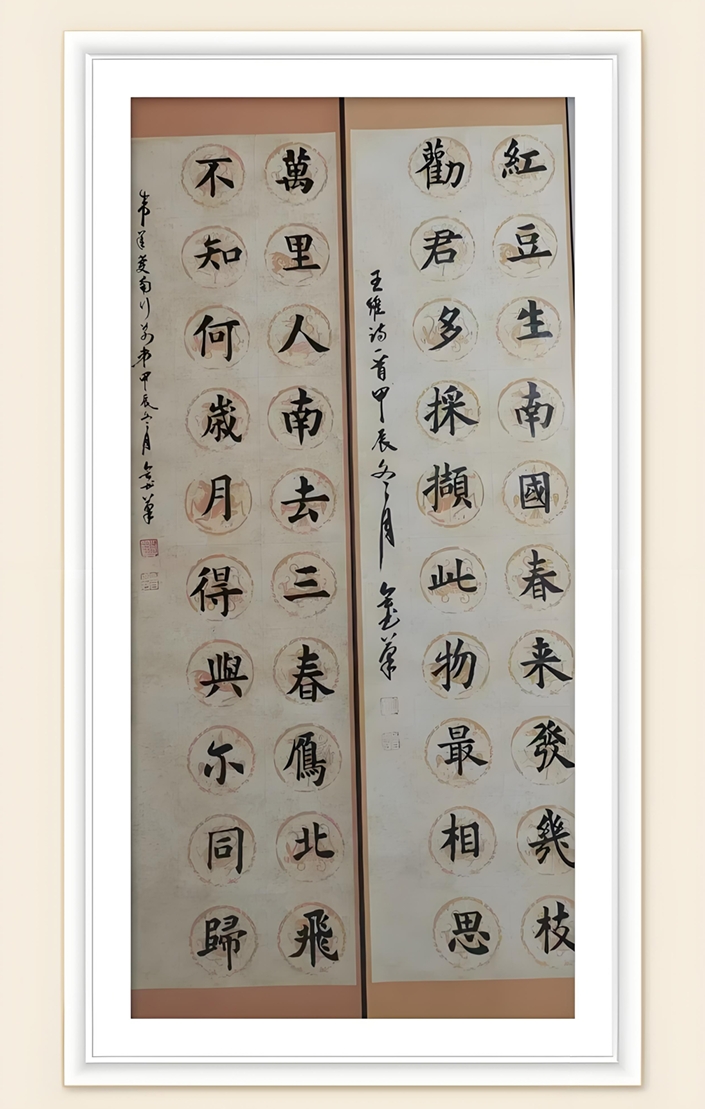 紅豆生南國春来發幾枝
勸君多採擷此物最相思
王維詩一首甲辰冬月
萬里人南去三春鴈北飛
不知何歳月得與尓同歸
韦承慶南行别弟甲辰冬月